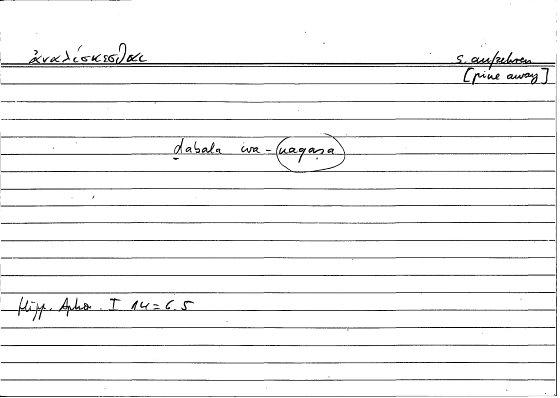 ἀναλίσκεσθαι s. aufzehren
[pine away]
ḏabala wa-naqaṣa
Hipp. Apho. I 14 = 6.5